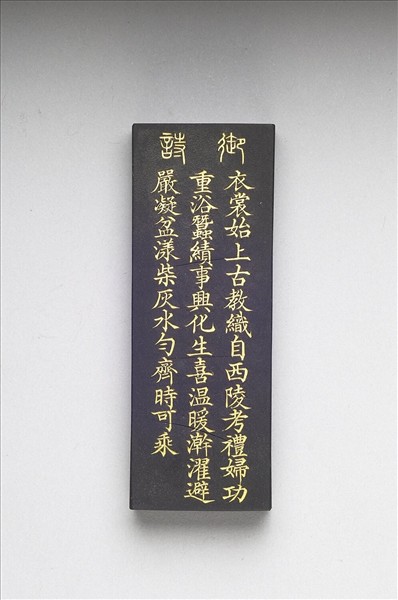 御詩
衣裳始上古教織自西陵考禮婦功
重浴蠶績事興化生喜温暖澣濯避
嚴凝盆漾柴灰水勻齊時可乘